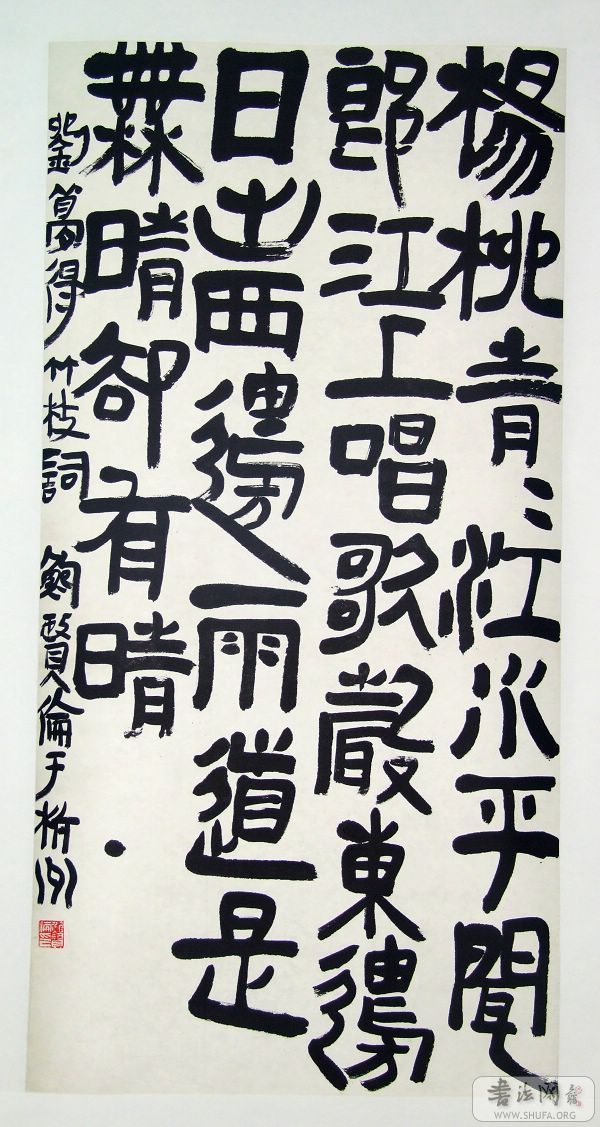 楊柳青〻江水平聞
郎江上唱歌聲東邊
日出西邊雨道是
無晴却有晴
劉夢得竹枝詞 鮑賢倫于杭州
書法网
WWW.SHUFA.ORG